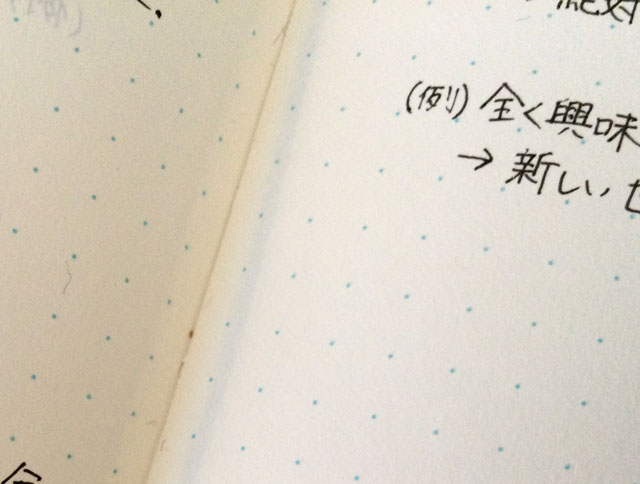 絶対
(例) 全く興味
→ 新しい